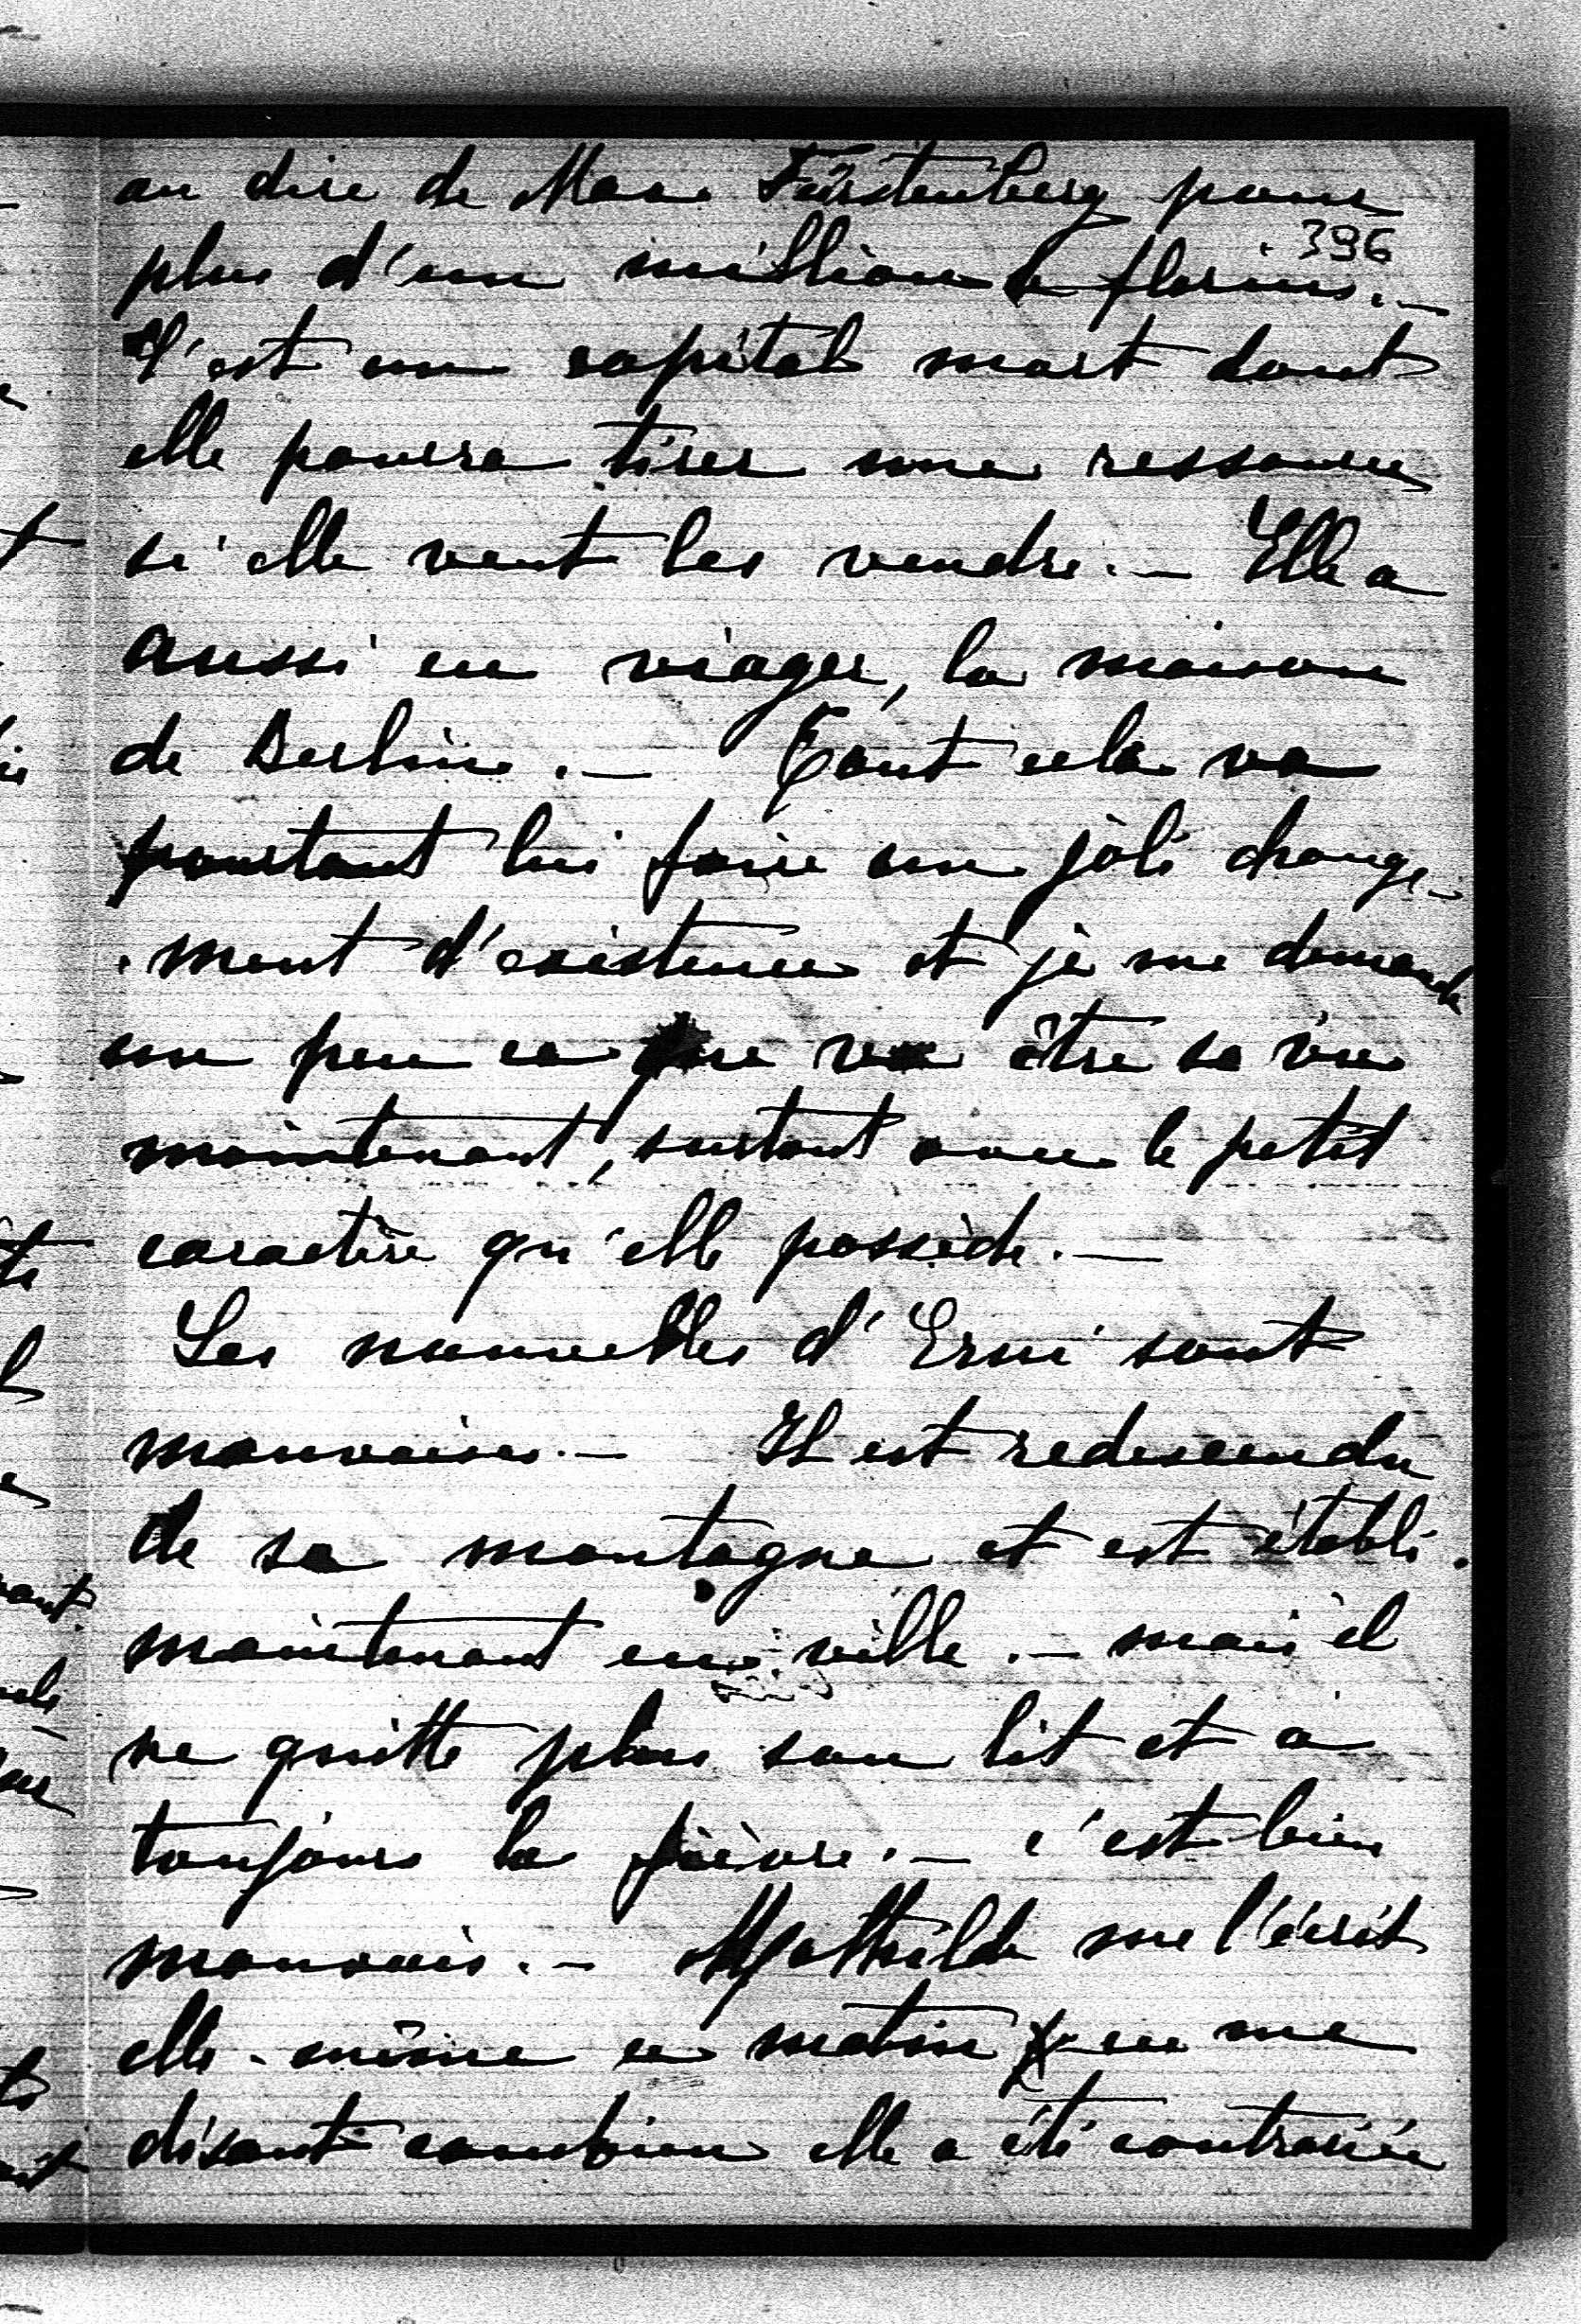 au dire de Max Fürstenberg pour
396
plus d'un million de florins. —
C'est un capital mort dont
elle pourra tirer une ressource
si elle veut les vendre. — Elle a
aussi en viager, la maison
de Berlin. — Tout cela va
pourtant lui faire un joli change-
-ment d'existence et je me demande
un peu ce que va être sa vie
maintenant, surtout avec le petit
caractère qu'elle possède. —
Les nouvelles d'Erni sont
mauvaises. — Il est redescendu
de sa montagne et est établi
maintenant en ville. — mais il
ne quitte plus son lit et a
toujours la fièvre. — c'est bien
mauvais. — Mathilde me l'écrit
elle-même ce matin en me
disant combien elle a été contrariée